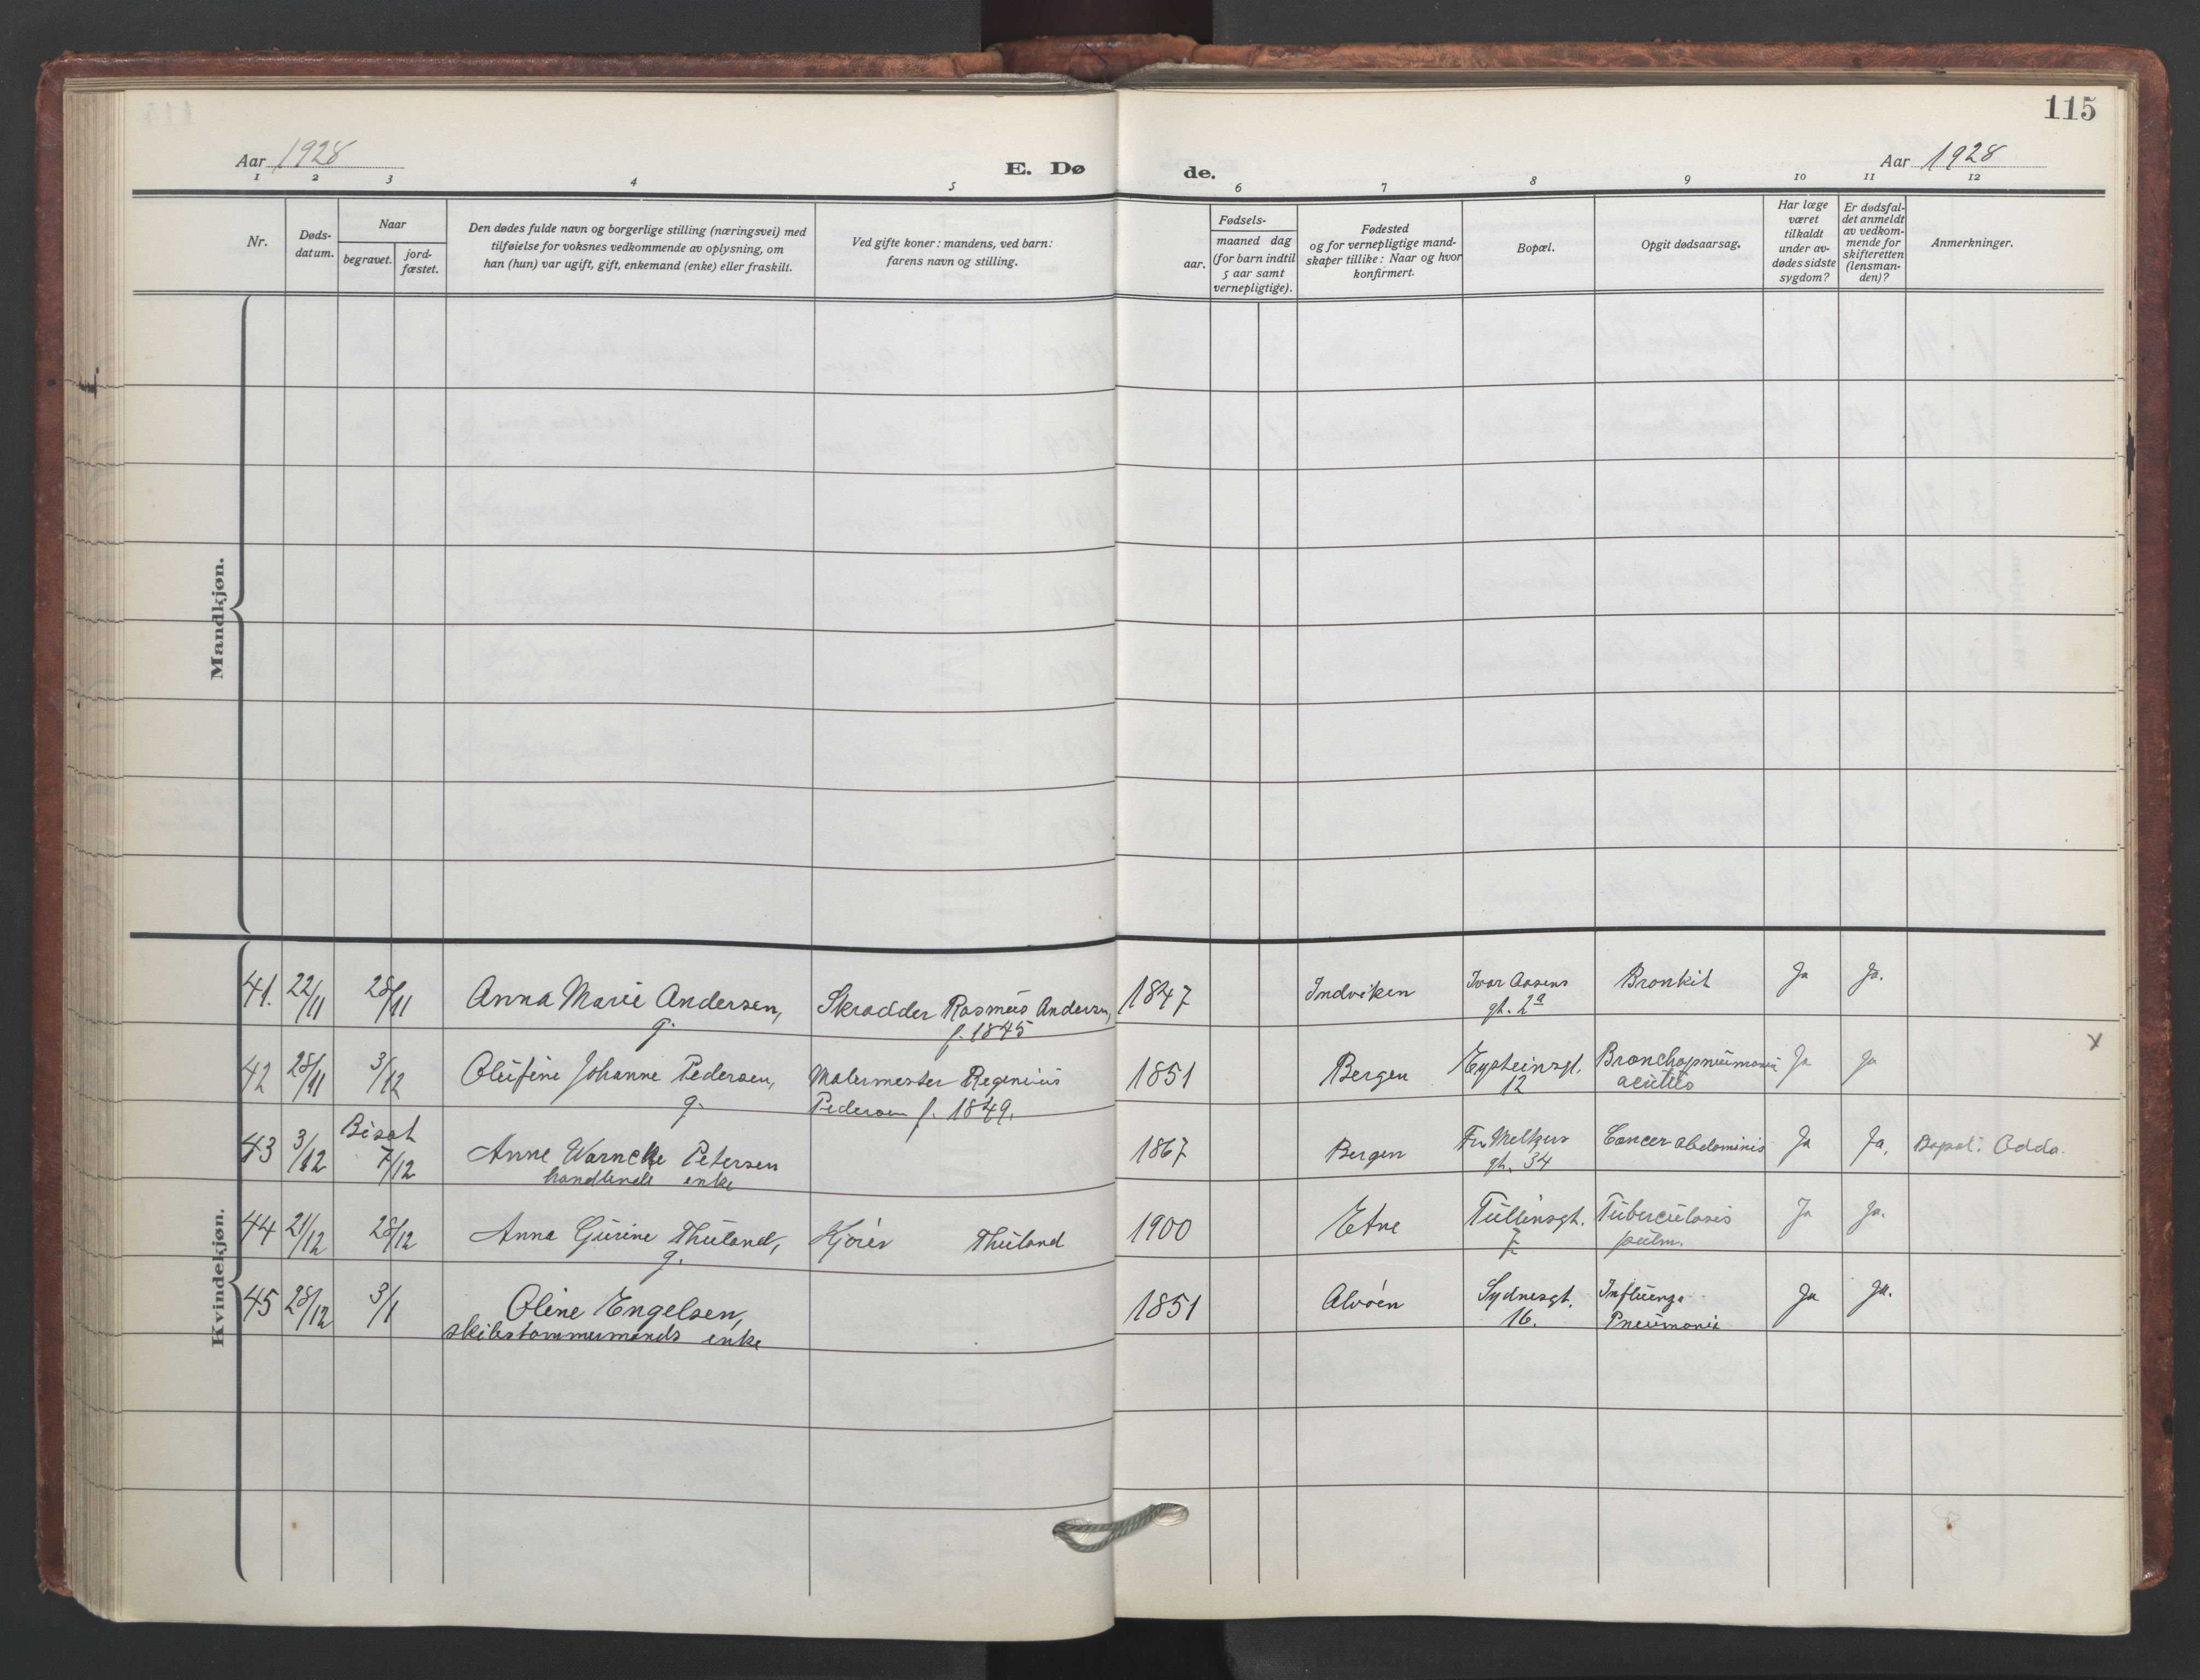 115
Aar 1928
E. Dø de.
Aar 1928
1 2 3 4 5 6 7 8 9 10 11 12
Nr.
Døds-
datum.
Naar
begravet.
jord-
fæstet.
Den dødes fulde navn og borgerlige stilling (næringsvei) med
tilføielse for voksnes vedkommende av oplysning, om
han (hun) var ugift, gift, enkemand (enke) eller fraskilt.
Ved gifte koner: mandens, ved barn:
farens navn og stilling.
Fødsels-
aar.
maaned dag
(for barn indtil
5 aar samt
vernepligtige).
Fødested
og for vernepligtige mand-
skaper tillike: Naar og hvor
konfirmert.
Bopæl.
Opgit dødsaarsag.
Har læge
været
tilkaldt
under av-
dødes sidste
sygdom?
Er dødsfal-
det anmeldt
av vedkom-
mende for
skifteretten
(lensman-
den)?
Anmerkninger.
Mandkjøn.
Kvindekjøn.
41. 22/11 28/11 Anna Marie Andersen, Skrædder Rasmus Andersen, 1847 Indviken Ivar Aasens Bronkit Ja Ja.
g. f. 1845 gt. 2a
42 28/11 3/12 Olufine Johanne Pedersen, Malermester Regenius 1851 Bergen Eysteinsgt. Bronchopneumonia Ja Ja x
g. Pedersen f. 1849. 12 acutus
43 3/12 Bisat 7/12 Anne Warncke Petersen 1867 Bergen Fr. Meltzers Cancer abdominis Ja Ja, Bopæl: Odda.
handlende enke gt. 34
44 21/12 28/12 Anna Gurine Thuland, Kjører Thuland 1900 Etne Tullinsgt. Tuberculosis Ja Ja.
g. 7 pulm.
45 28/12 3/1 Oline Engelsen, 1851 Alvøen Sydnesgt. Influenza Ja Ja.
skibstømmermands enke 16. Pneumonia